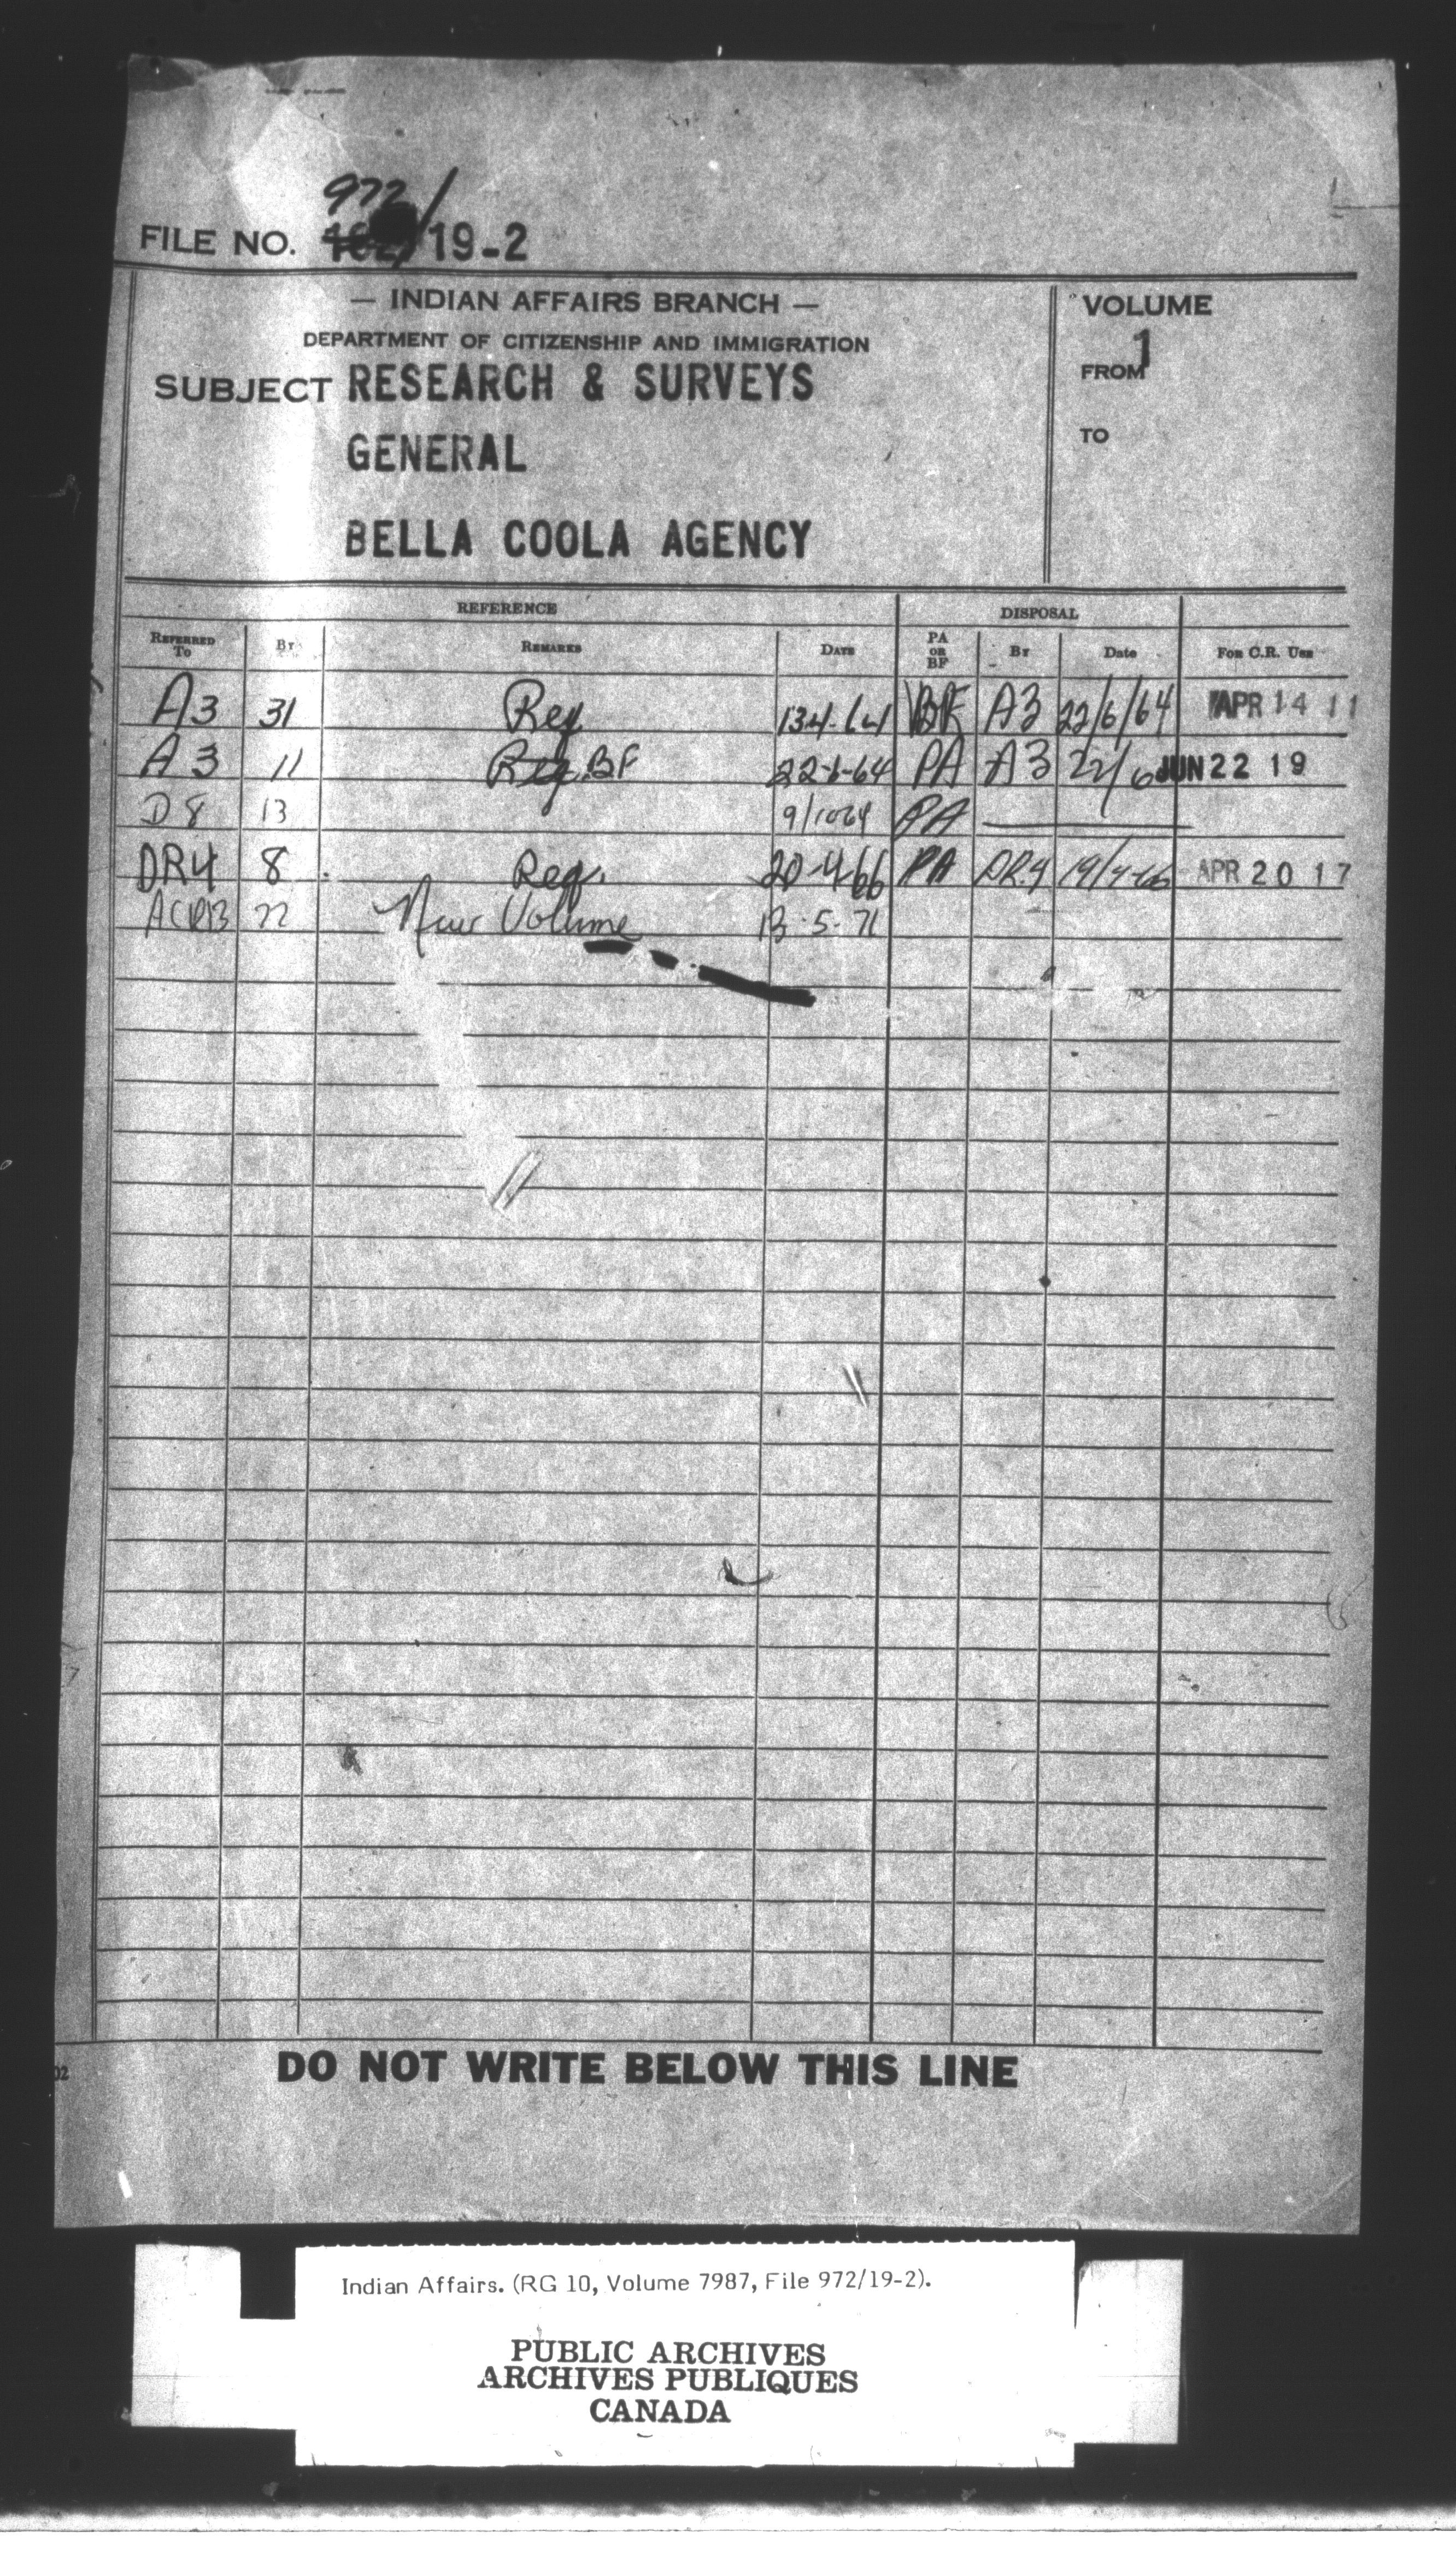 972/
FILE NO. 19-2
— INDIAN AFFAIRS BRANCH —
DEPARTMENT OF CITIZENSHIP AND IMMIGRATION
SUBJECT RESEARCH & SURVEYS
GENERAL
BELLA COOLA AGENCY
VOLUME
1
FROM
TO
REFERENCE DISPOSAL
REFERRED TO BY REMARKS DATE PA OR BF BY Date FOR C.R. USE
A3 31 Req 13-4-64 BF A3 22/6/64 APR 14 11
A3 11 Req. BF 22-6-64 PA A3 22/6 JUN 22 19
D8 13 9/10 64 PA
DR4 8 Req. 20-4-66 PA DR4 19/4-66 APR 20 17
22 New Volume 13-5-71
02
DO NOT WRITE BELOW THIS LINE
Indian Affairs. (RG 10, Volume 7987, File 972/19-2).
PUBLIC ARCHIVES
ARCHIVES PUBLIQUES
CANADA